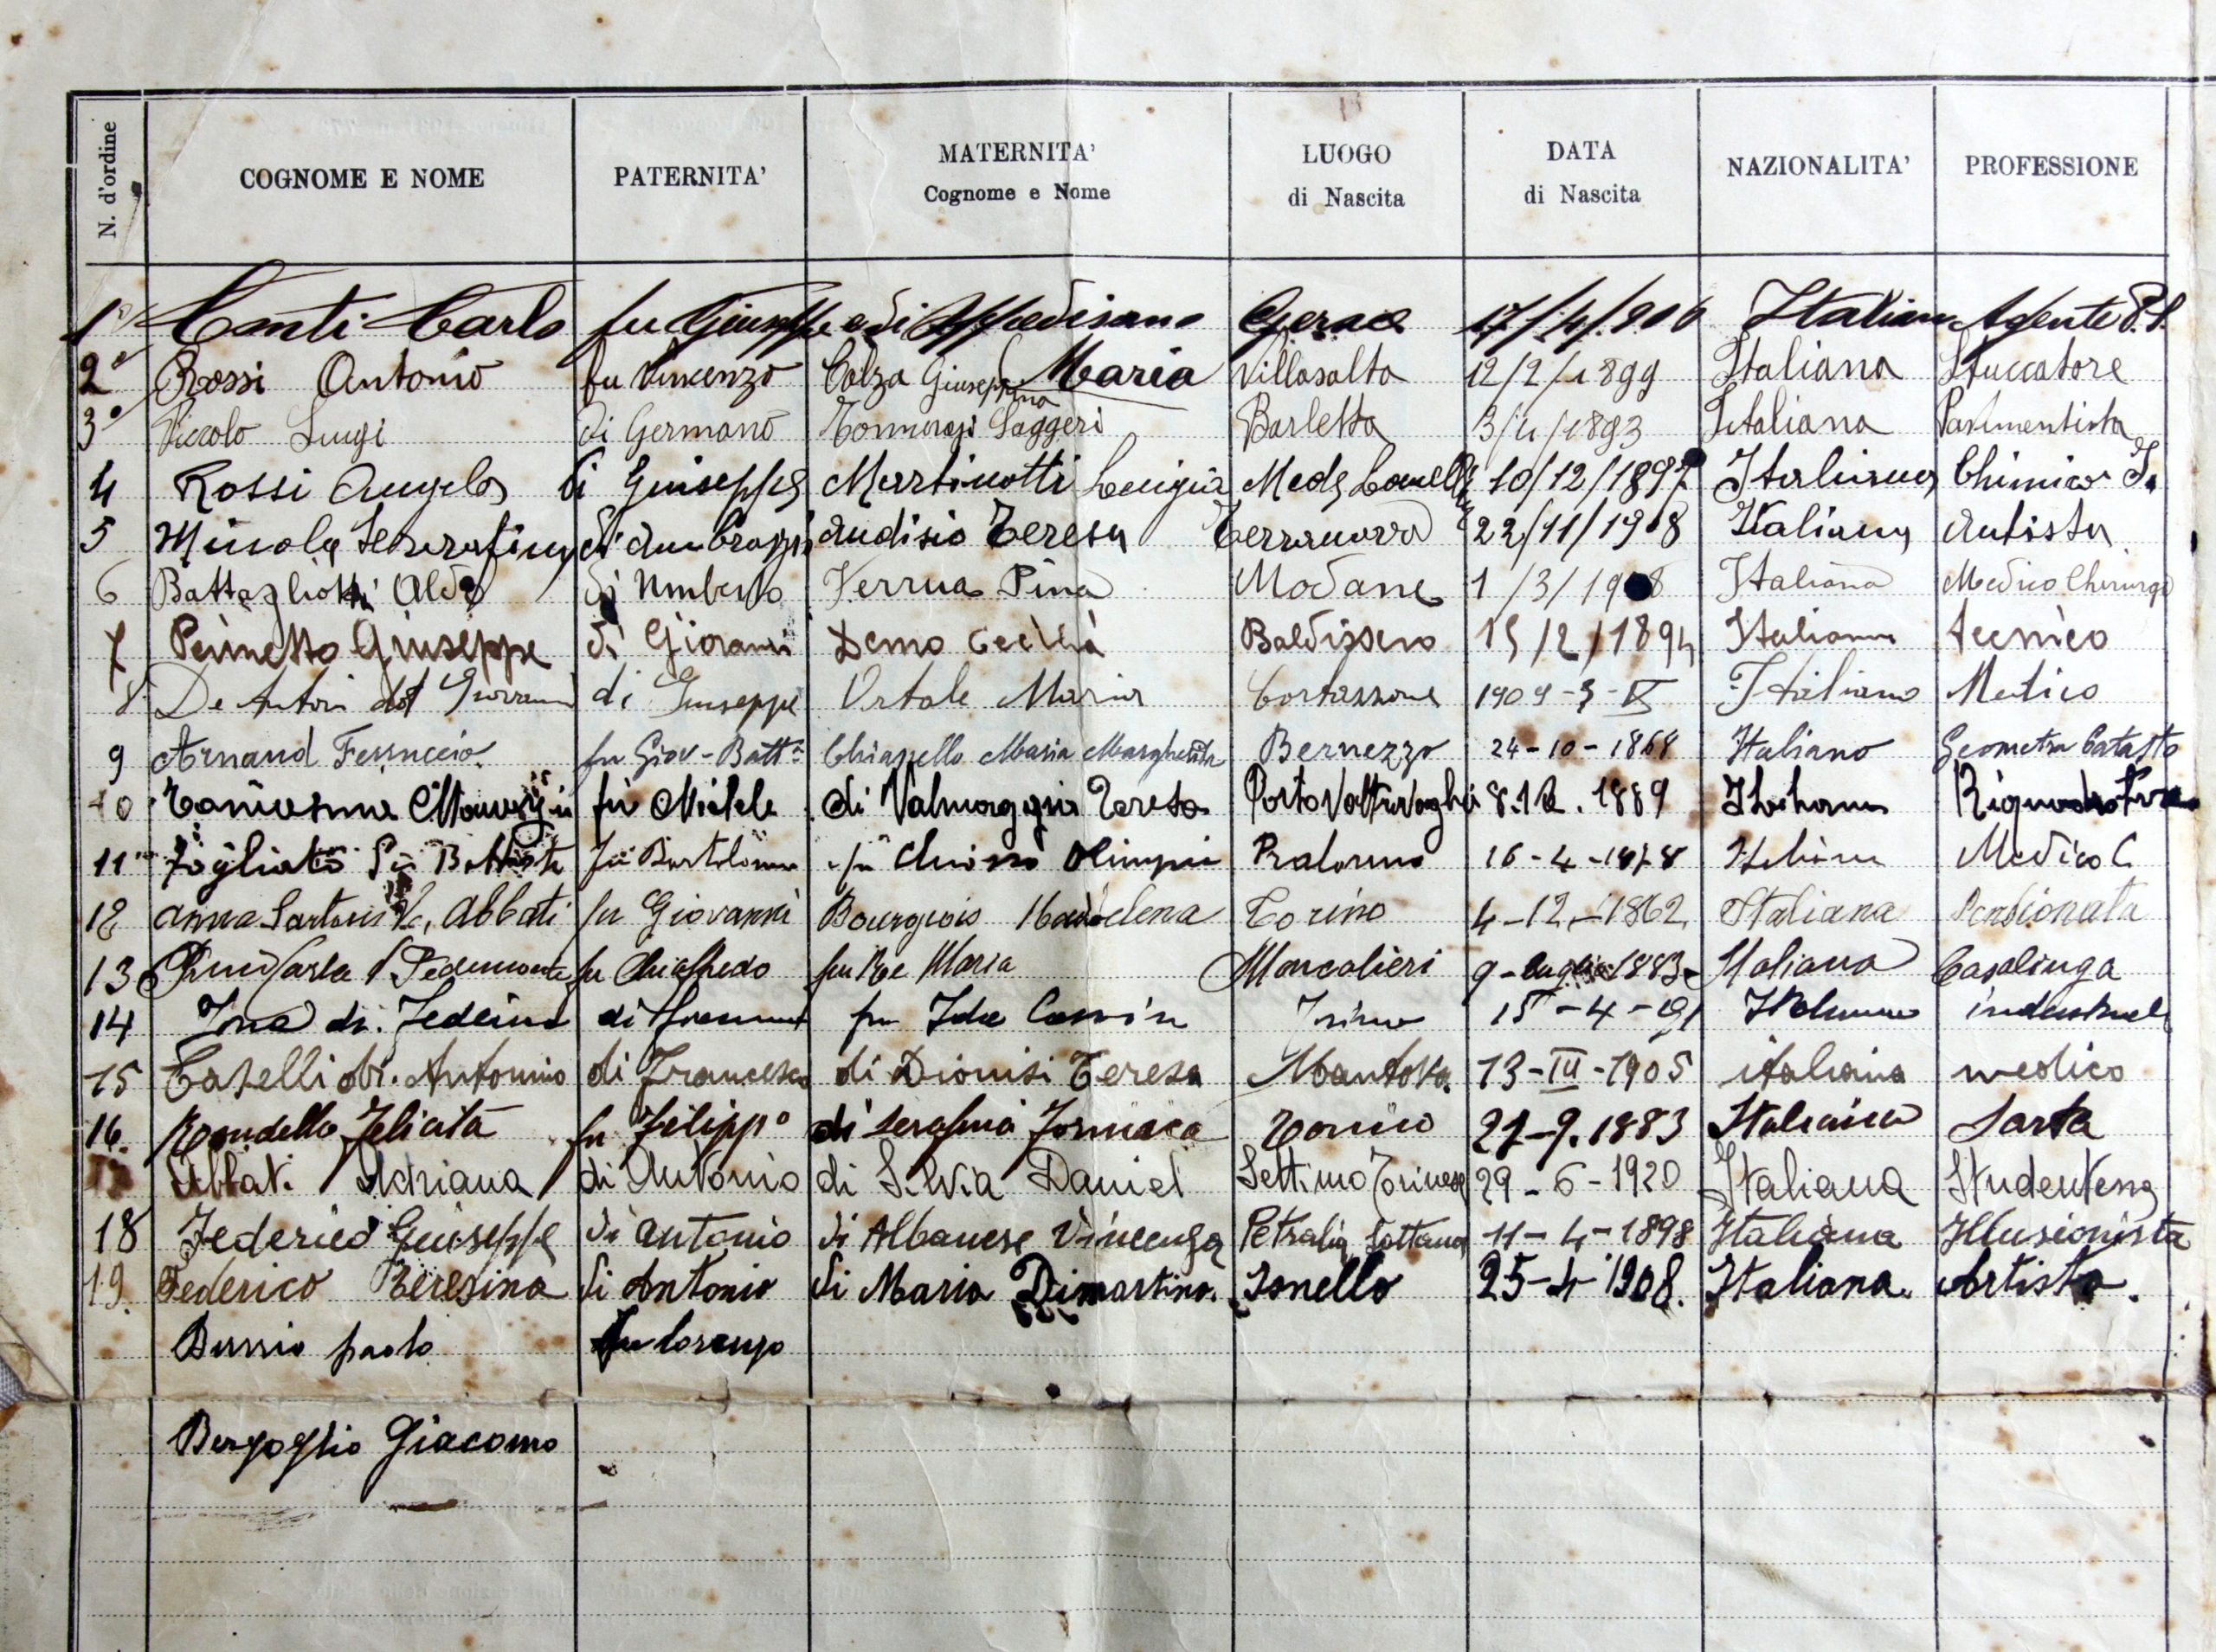 N. d'ordine COGNOME E NOME PATERNITA' MATERNITA' Cognome e Nome LUOGO di Nascita DATA di Nascita NAZIONALITA' PROFESSIONE
1° Conti Carlo fu Giuseppe e di Affedisano Maria Gerace 17/4/906 Italiana Agente P.S.
2° Rossi Antonio fu Vincenzo Calza Giuseppina Villasalto 12/2/1899 Italiana Stuccatore
3° Luigi di Germano Saggeri Barletta 3/4/1893 Italiana Pavimentista
4 Rossi Angelo di Giuseppe Martinotti Luigia Mede 10/12/1897 Italiana Chimico
5 Minola di Audisio Teresa Terranova 22/11/1908 Italiana Autista
6 Battagliotti Aldo di Umberto Verrua Pina Modane 1/3/1908 Italiana Medico Chirurgo
7 Perinetto Giuseppe di Giovanni Demo Cecilia Baldissero 15/2/1894 Italiana tecnico
8 De Antoni Giovanni di Giuseppe Ortale Maria Cortazzone 1909-3-IX Italiano Medico
9 Arnand Ferruccio fu Giov-Batt.a Chiappello Maria Margherita Bernezzo 24-10-1868 Italiano Geometra Catasto
10 fu Michele di Valmaggia Teresa Porto Valtravaglia 1889 Italiana
11 Fogliato Gio Battista fu Bartolomeo fu Olimpia Pralormo 16-4-1878 Italiana Medico C
12 Anna Sartoris V. Abbati fu Giovanni Bourgeois Maddalena Torino 4-12-1862 Italiana Pensionata
13 Carla fu Chiaffredo fu Re Maria Moncalieri 9-luglio 1883- Italiana Casalinga
14 dr. di fu Ida 15-4-91 Italiana
15 Caselli dr. Antonio di Francesco di Dionisi Teresa Mantova. 13-III-1905 italiana medico
16. Rondello Felicita fu Filippo di Serafina Fornaca Torino 27-9.1883 Italiana Sarta
Abbati Adriana di Antonio di Silvia Daniel Settimo Torinese 29-6-1920 Italiana Studentessa
18 Federico Giuseppe di Antonio di Albanese Vincenza Petralia Sottana 11-4-1898 Italiana Illusionista
19. Federico Teresina di Antonio di Maria Dimartino. Isnello 25-4-1908. Italiana. Artista.
Bussio paolo fu lorenzo
Bergoglio Giacomo